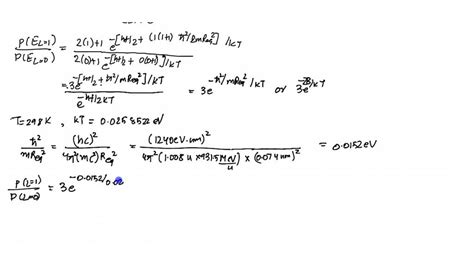 P(E_L=1) / D(E_L=0) = 2(1)+1 e^-[ħ/2 + (1(1+1) ħ²/2mReq²]/kT / 2(0)+1 e^-[ħ/2 + 0(0+1)]/kT
= 3e^-[ħ/2 + ħ²/mReq²]/kT / e^-ħ/2kT = 3e^-ħ²/mReq²/kT or 3e^-2B/kT
T=298K, kT = 0.0258522eV
ħ² / mReq² = (hc)² / 4π²(mc²)Req² = (1240eV·nm)² / 4π²(1.008u × 931.5 MeV/u) × (0.074nm)² = 0.0152eV
P(L=1) / D(L=0) = 3e^-0.0152/0.02